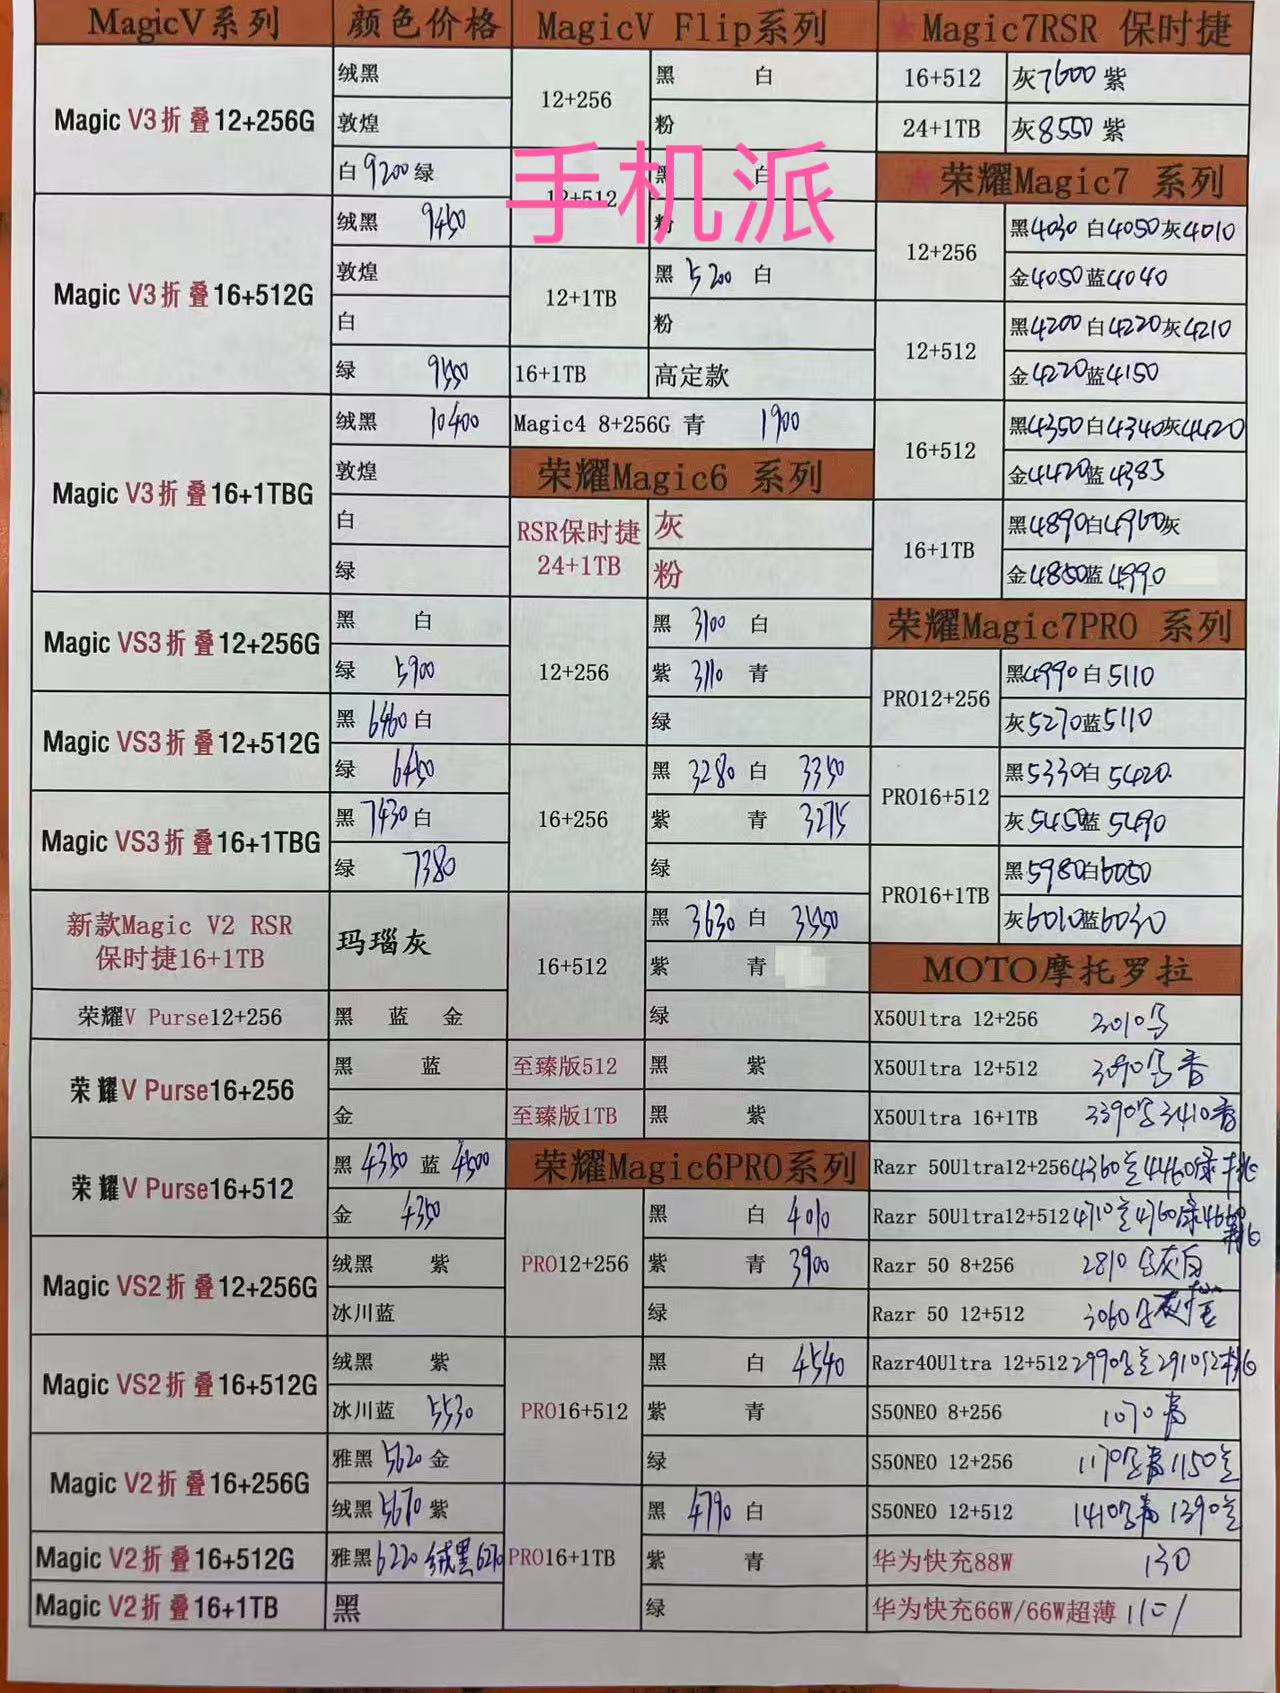 MagicV系列 颜色价格
Magic V3折叠12+256G 绒黑
敦煌
白 9200 绿
Magic V3折叠16+512G 绒黑 9450
敦煌
白
绿 9550
Magic V3折叠16+1TBG 绒黑 10400
敦煌
白
绿
Magic VS3折叠12+256G 黑 白
绿 5900
Magic VS3折叠12+512G 黑 6460 白
绿 6450
Magic VS3折叠16+1TBG 黑 7430 白
绿 7380
新款Magic V2 RSR
保时捷16+1TB 玛瑙灰
荣耀V Purse12+256 黑 蓝 金
荣耀V Purse16+256 黑 蓝
金
荣耀V Purse16+512 黑 4350 蓝 4500
金 4350
Magic VS2折叠12+256G 绒黑 紫
冰川蓝
Magic VS2折叠16+512G 绒黑 紫
冰川蓝 5530
Magic V2折叠16+256G 雅黑 5620 金
绒黑 5670 紫
Magic V2折叠16+512G 雅黑 6220 绒黑 6270
Magic V2折叠16+1TB 黑
MagicV Flip系列
12+256 黑 白
粉
手机派
12+512 黑 白
粉
12+1TB 黑 5200 白
粉
16+1TB 高定款
Magic4 8+256G 青 1900
荣耀Magic6 系列
RSR保时捷
24+1TB 灰
粉
12+256 黑 3100 白
紫 3110 青
绿
16+256 黑 3280 白 3350
紫 青 3275
绿
16+512 黑 3630 白 3550
紫 青
绿
至臻版512 黑 紫
至臻版1TB 黑 紫
荣耀Magic6PRO系列
PRO12+256 黑 白 4010
紫 青 3900
绿
PRO16+512 黑 白 4540
紫 青
绿
PRO16+1TB 黑 4790 白
紫 青
绿
★ Magic7RSR 保时捷
16+512 灰 7600 紫
24+1TB 灰 8550 紫
★ 荣耀Magic7 系列
12+256 黑4030 白4050 灰4010
金4050 蓝4040
12+512 黑4200 白4220 灰4210
金4220 蓝4150
16+512 黑4350 白4340 灰4420
金4420 蓝4385
16+1TB 黑4890 白4960 灰
金4850 蓝4990
荣耀Magic7PRO 系列
PRO12+256 黑4990 白5110
灰5270 蓝5110
PRO16+512 黑5330 白5420
灰5450 蓝5490
PRO16+1TB 黑5980 白6050
灰6010 蓝6030
MOTO摩托罗拉
X50Ultra 12+256 3010
X50Ultra 12+512 3090
X50Ultra 16+1TB 3390 3410
Razr 50Ultra12+256 4360 4460绿
Razr 50Ultra12+512 4710 4760 4660
Razr 50 8+256 2810 灰白
Razr 50 12+512 3060
Razr40Ultra 12+512 2990 2910
S50NEO 8+256 1070
S50NEO 12+256 1170 1150
S50NEO 12+512 1410 1390
华为快充88W 130
华为快充66W/66W超薄 110/